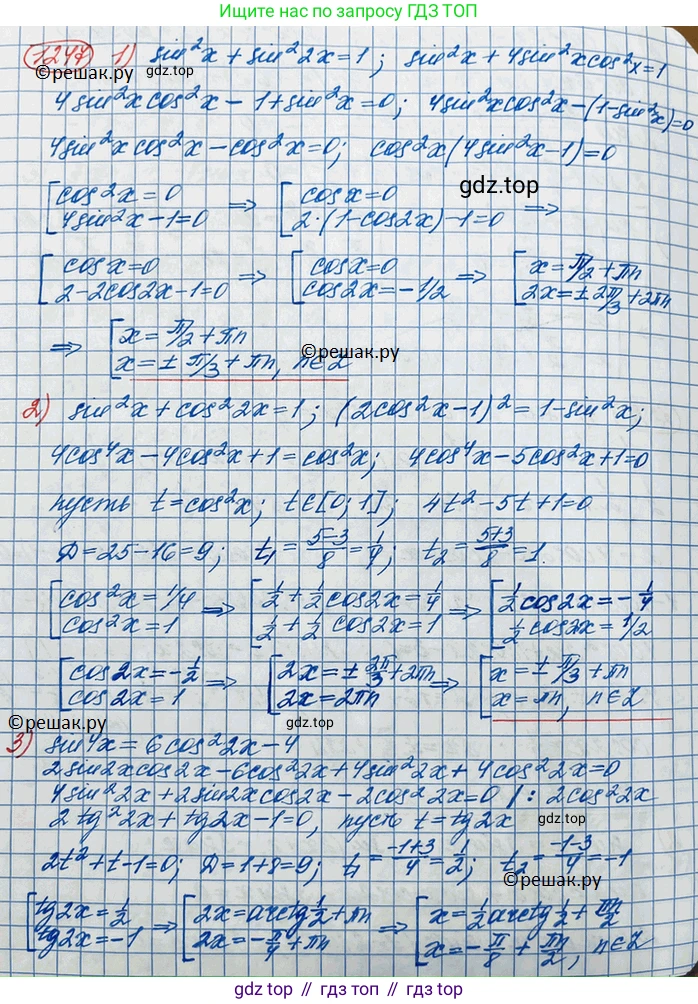 Ищите нас по запросу ГДЗ ТОП
1247 1) sin²x + sin²2x = 1; sin²x + 4sin²xcos²x = 1
©решак.ру gdz.top
4sin²xcos²x − 1 + sin²x = 0; 4sin²xcos²x − (1 − sin²x) = 0
4sin²xcos²x − cos²x = 0; cos²x(4sin²x − 1) = 0
gdz.top
[cos²x = 0 ⇒ [cos x = 0 ⇒
4sin²x − 1 = 0 2·(1 − cos2x) − 1 = 0
[cosx = 0 ⇒ [cosx = 0 ⇒ [x = π/2 + πn
2 − 2cos2x − 1 = 0 cos2x = −1/2 2x = ± 2π/3 + 2πn
⇒ [x = π/2 + πn
x = ± π/3 + πn, n∈Z
©решак.ру
2) sin²x + cos²2x = 1; (2cos²x − 1)² = 1 − sin²x;
4cos⁴x − 4cos²x + 1 = cos²x; 4cos⁴x − 5cos²x + 1 = 0
пусть t = cos²x; t∈[0; 1]; 4t² − 5t + 1 = 0
Д = 25 − 16 = 9; t₁ = (5−3)/8 = 1/4; t₂ = (5+3)/8 = 1.
gdz.top
[cos²x = 1/4 ⇒ [1/2 + 1/2 cos2x = 1/4 ⇒ [1/2 cos2x = − 1/4
cos²x = 1 1/2 + 1/2 cos2x = 1 1/2 cos2x = 1/2
[cos2x = − 1/2 ⇒ [2x = ± 2π/3 + 2πn ⇒ [x = ± π/3 + πn
cos2x = 1 2x = 2πn x = πn, n∈Z
©решак.ру gdz.top
©решак.ру
3) sin4x = 6cos²2x − 4
2sin2xcos2x − 6cos²2x + 4sin²2x + 4cos²2x = 0
4sin²2x + 2sin2xcos2x − 2cos²2x = 0 /: 2cos²2x
2tg²2x + tg2x − 1 = 0, пусть t = tg2x
©решак.ру
2t² + t − 1 = 0; Д = 1 + 8 = 9; t₁ = (−1+3)/4 = 1/2; t₂ = (−1−3)/4 = −1
gdz.top
[tg2x = 1/2 ⇒ [2x = arctg 1/2 + πn ⇒ [x = 1/2 arctg 1/2 + πn/2
tg2x = −1 2x = − π/4 + πn x = − π/8 + πn/2, n∈Z
©решак.ру
Больше решений на сайте gdz.top